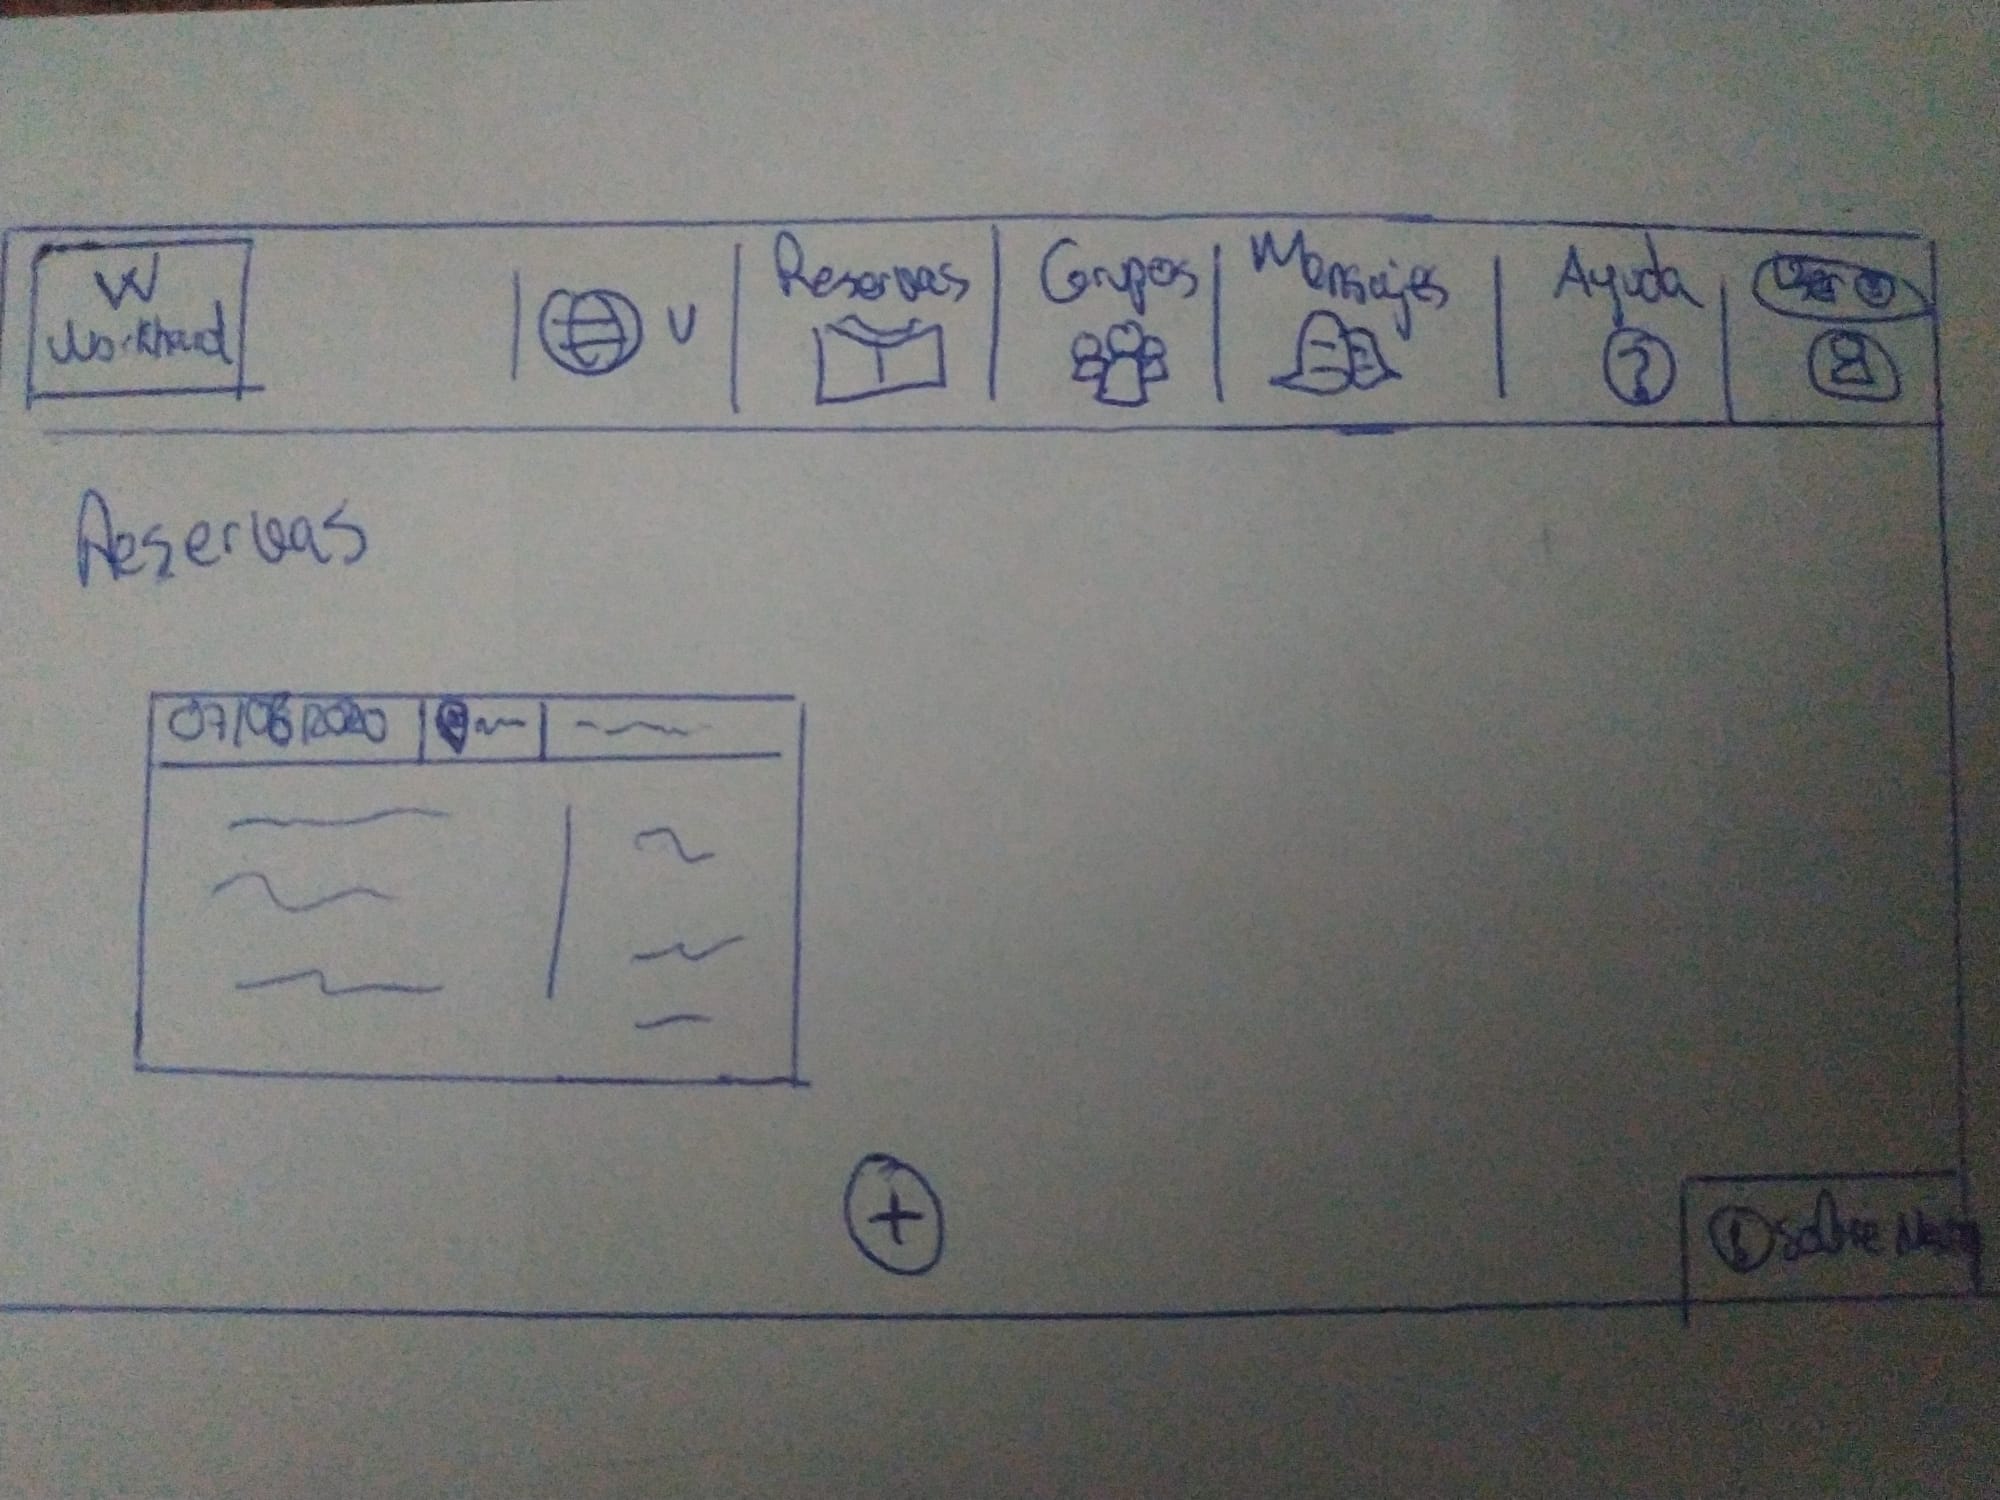 W
Workhard
Reservas
Grupos
Mensajes
Ayuda
User
?
Reservas
07/08/2020
+
i Sobre